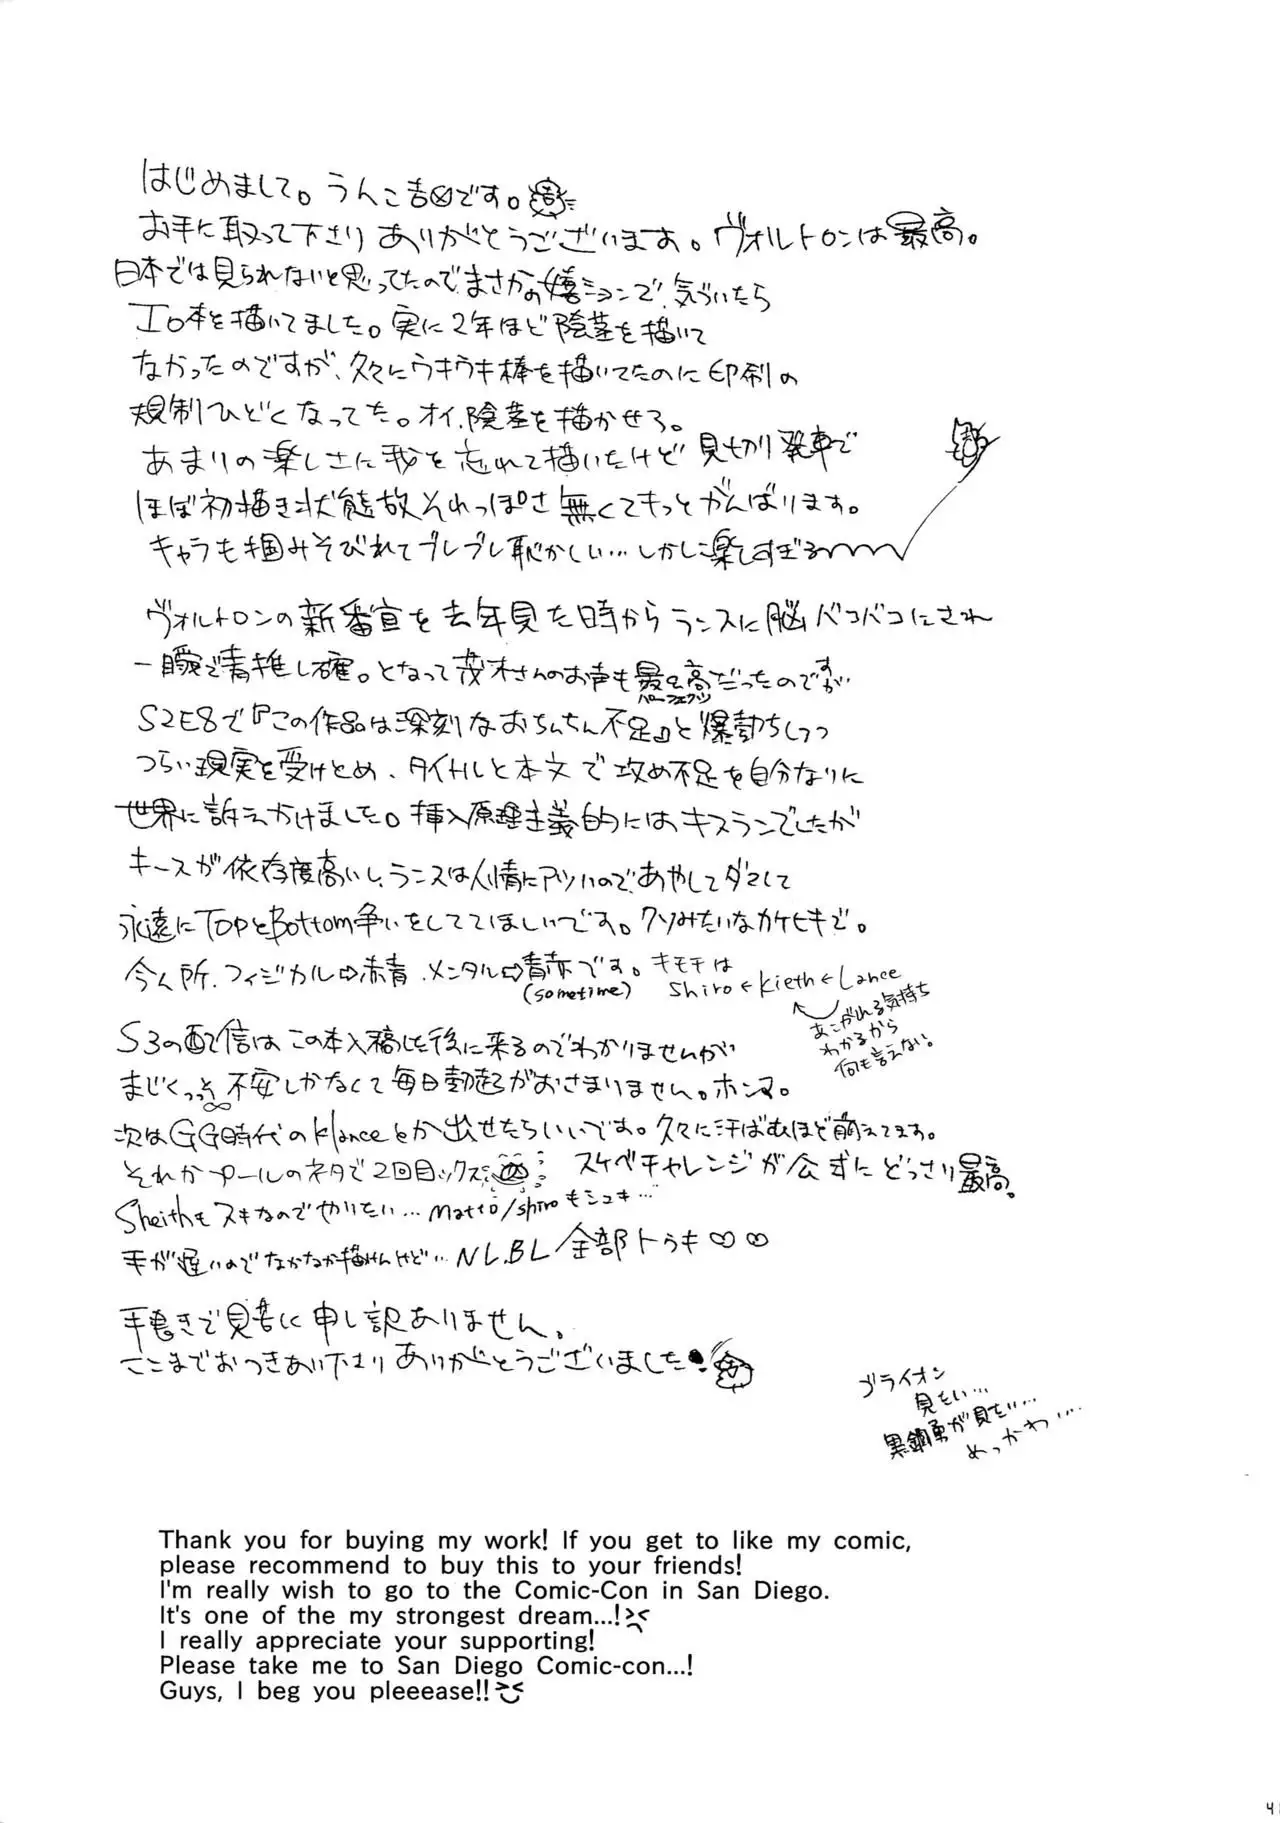 はじめまして。うんこ吉です。
お手に取って下さり ありがとうございます。ヴォルトロンは最高。
日本では見られないと思ってたので、まさかの嬉ションで、気づいたら
エロ本を描いてました。実に2年ほど陰茎を描いて
なかったのですが、久々にウキウキ棒を描いてたのに印刷の
規制ひどくなってた。オイ、陰茎を描かせろ。
あまりの楽しさに我を忘れて描いたけど 見切り発車で
ほぼ初描き状態故それっぽさ無くてもっとがんばります。
キャラも掴みそびれてブレブレ恥かしい…しかし楽しすぎる
ヴォルトロンの新番宣を去年見た時からランスに脳バコバコにされ
一瞬で青推し確。となって茂木さんのお声も最&高だったのですが
パーフェクツ
S2E8で『この作品は深刻なおちんちん不足』と爆勃ちしつつ
つらい現実を受けとめ、タイトルと本文で攻め不足を自分なりに
世界に訴えかけました。挿入原理主義的にはキスランでしたが
キースが依存度高いし、ランスは人情にアツいので、あやしてダマして
永遠にTopとBottom争いをしててほしいです。クソみたいなカケヒキで。
今ん所、フィジカル⇨赤青、メンタル⇨青赤です。
(sometime)
キモチは
Shiro←Kieth←Lance
あこがれる気持ち
わかるから
何も言えない。
S3の配信はこの本入稿した後に来るのでわかりませんが
まじくっそ不安しかなくて毎日勃起がおさまりません。ホンマ。
次はGG時代のklanceとか出せたらいいです。久々に汗ばむほど萌えてます。
それかプールのネタで2回目ックス
スケベチャレンジが公式にどっさり最高。
Sheithもスキなのでやりたい…matto/shiroもシュキ…
手が遅いのでなかなか描けんけど…NL.BL 全部トゥキ♡♡
手書きで見苦に申し訳ありません。
ここまでおつきあい下さり ありがとうございました!
ゴライオン
見たい…
黒鋼勇が見たい…
めっかわ…
Thank you for buying my work! If you get to like my comic,
please recommend to buy this to your friends!
I'm really wish to go to the Comic-Con in San Diego.
It's one of the my strongest dream...!
I really appreciate your supporting!
Please take me to San Diego Comic-con...!
Guys, I beg you pleeease!!